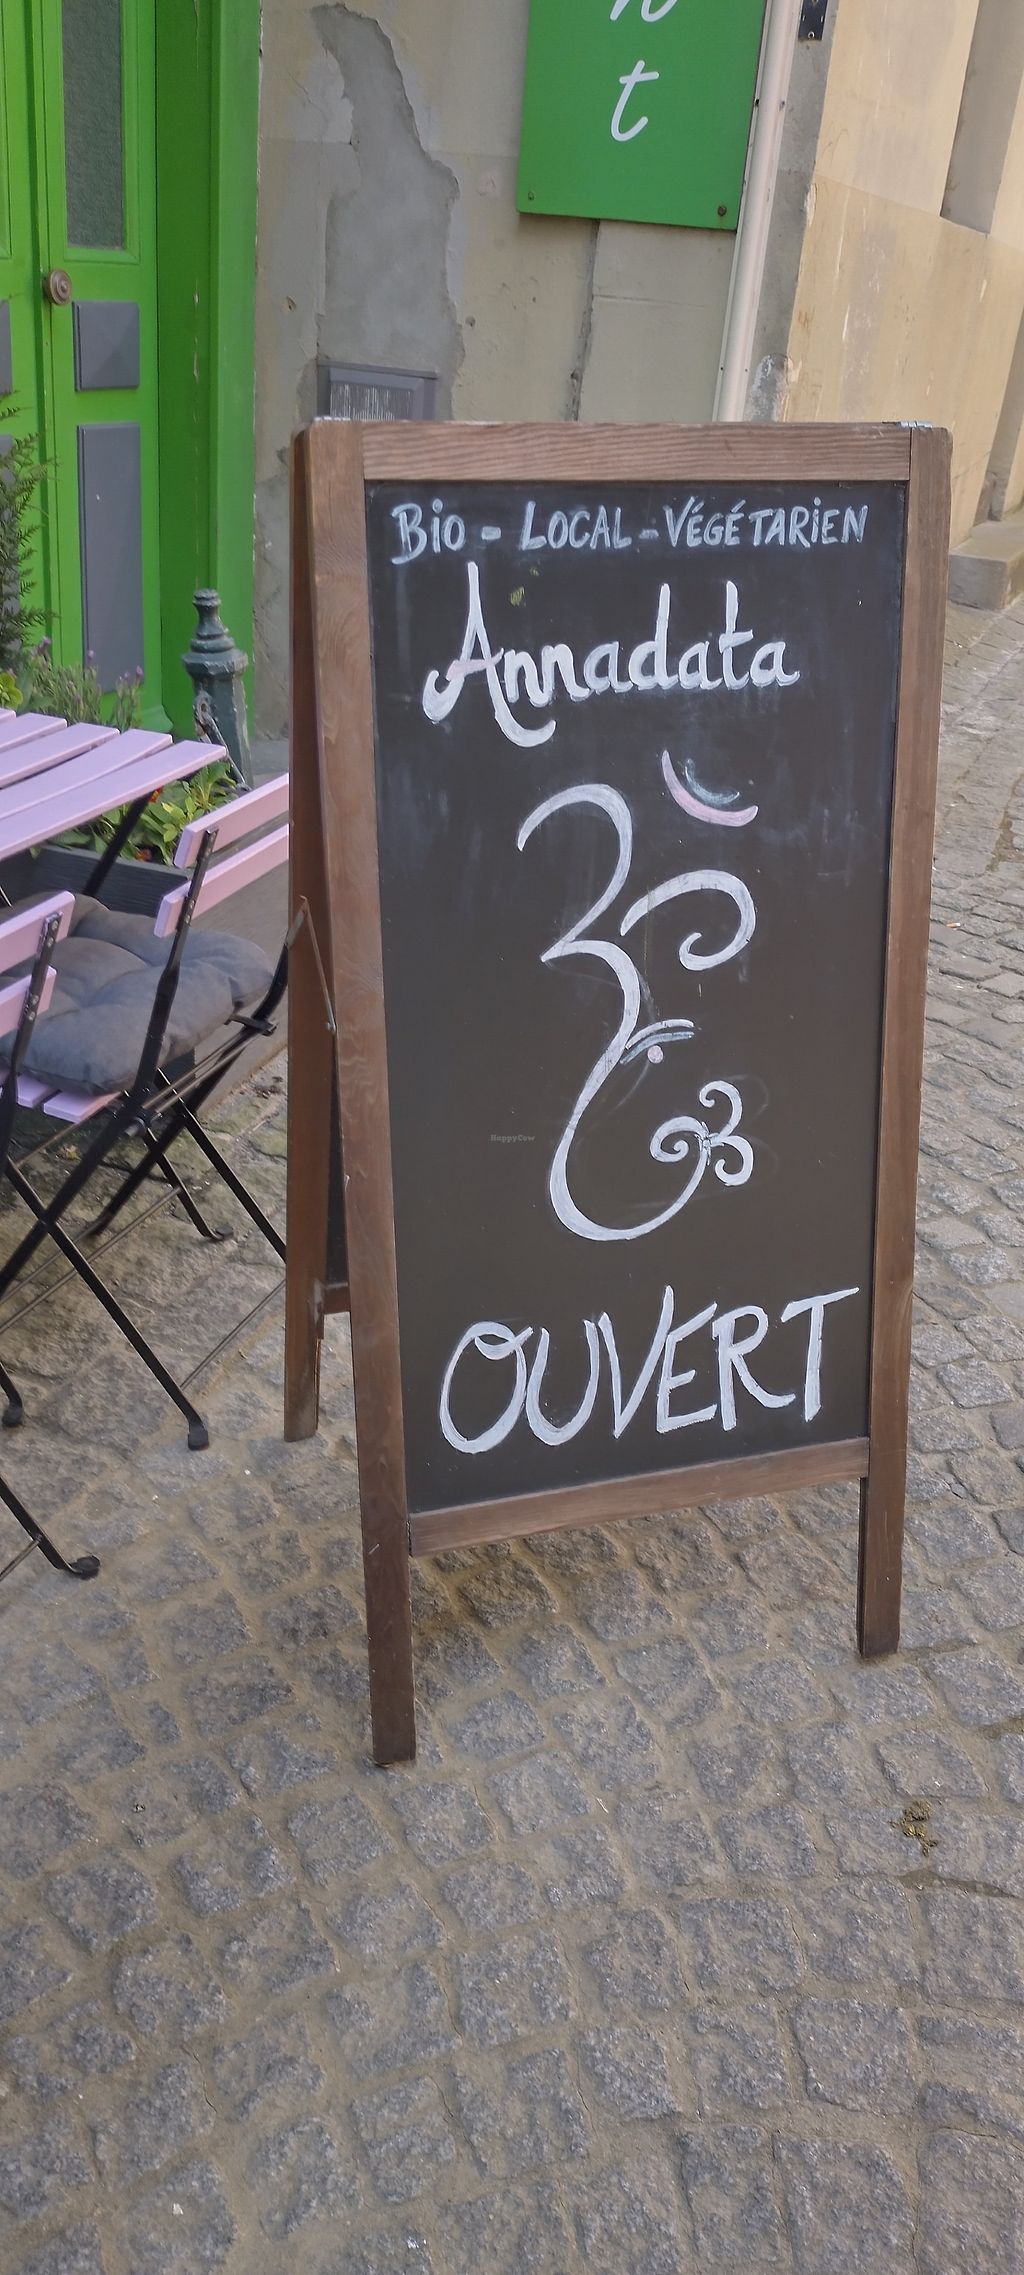 t
Bio - LOCAL - VÉGÉTARIEN
Annadata
HappyCow
OUVERT